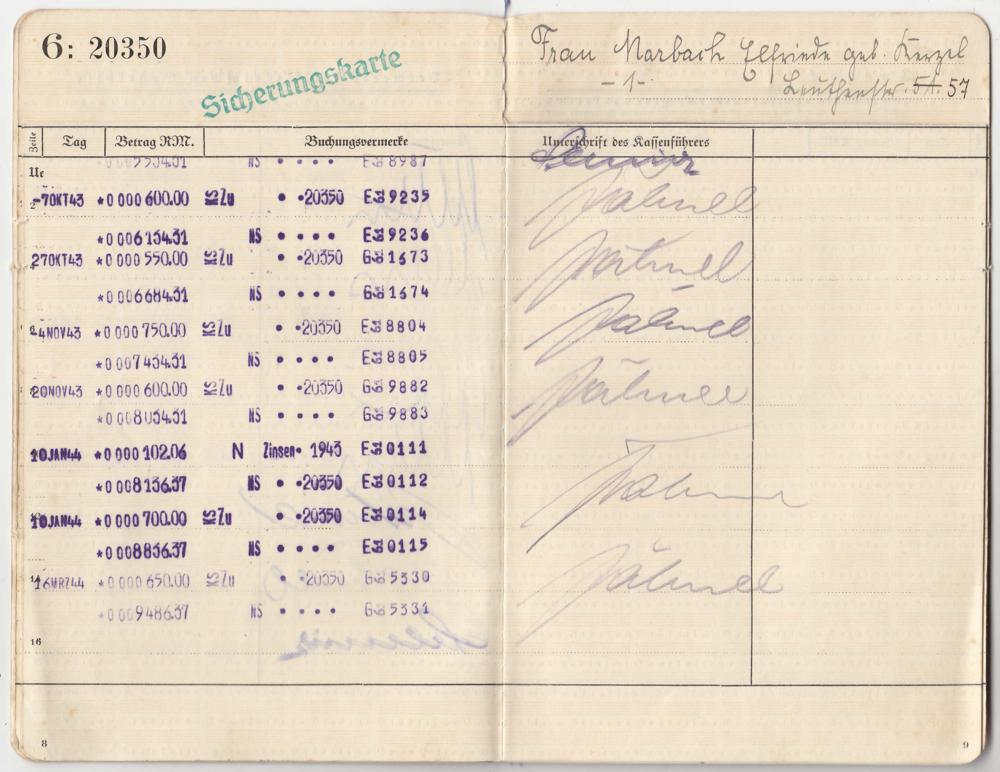 6: 20350
Sicherungskarte
Frau Marbach Elfriede geb.
-1-
57
Zeile Tag Betrag RM. Buchungsvermerke Unterschrift des Kassenführers
*0005534.31 NS • • • • E 8987
Ue
-7OKT43 *0000600.00 KS Zu • •20350 E 9235
*0006134.31 NS • • • • E 9236
27OKT43 *0000550.00 KS Zu • •20350 G 1673
*0006684.31 NS • • • • G 1674
-4NOV43 *0000750.00 KS Zu • •20350 E 8804
*0007434.31 NS • • • • E 8805
20NOV43 *0000600.00 KS Zu • •20350 G 9882
*0008034.31 NS • • • • G 9883
10JAN44 *0000102.06 N Zinsen• 1943 E 0111
*0008136.37 NS • •20350 E 0112
10JAN44 *0000700.00 KS Zu • •20350 E 0114
*0008836.37 NS • • • • E 0115
16MRZ44 *0000650.00 KS Zu • •20350 G 5330
*0009486.37 NS • • • • G 5331
16
8 9